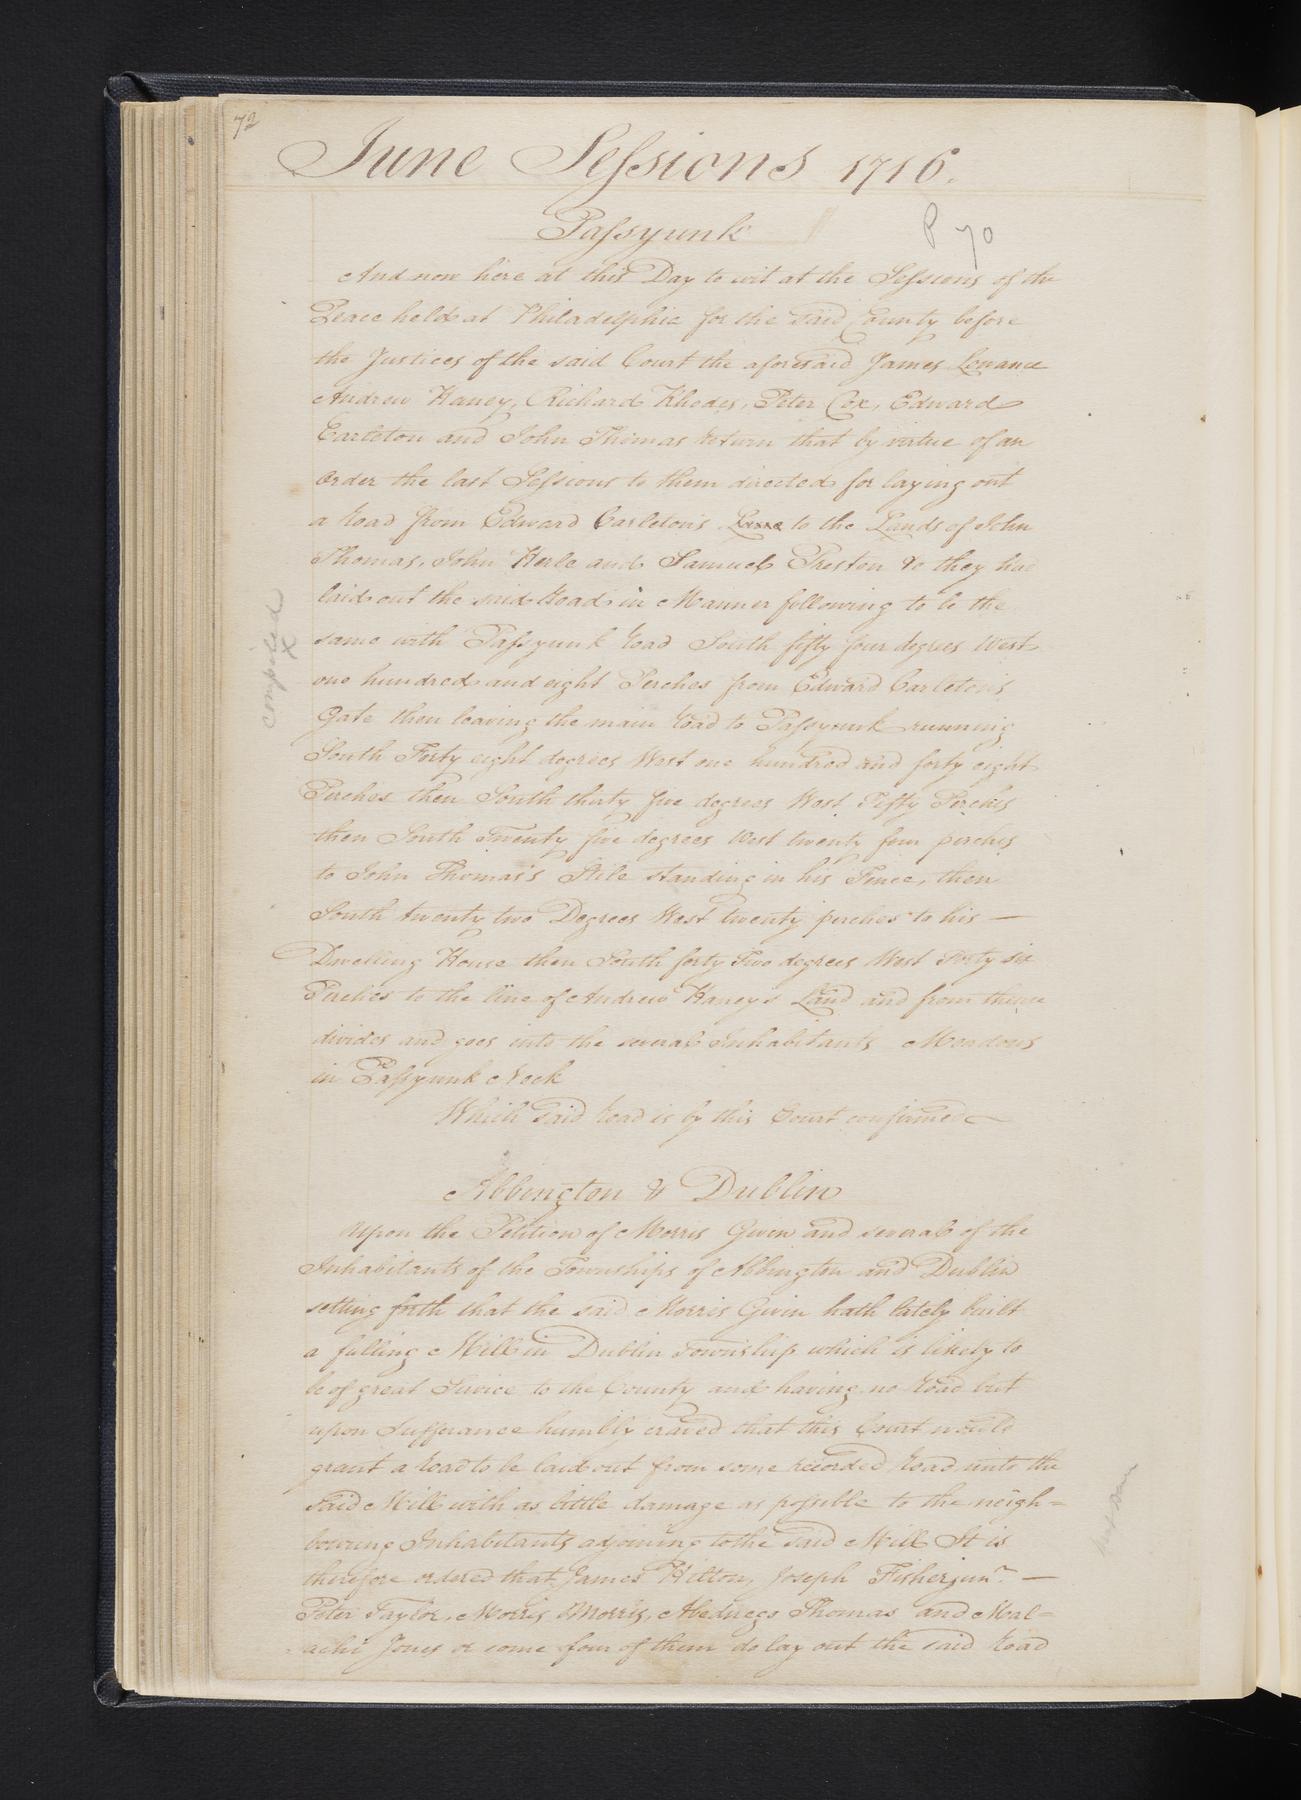 72
June Sessions 1716.
Passyunk
P 70
And now here at this Day to wit at the Sessions of the
Peace held at Philadelphia for the said County before
the Justices of the said Court the aforesaid James Lowance
Andrew Haney, Richard Rhodes, Peter Cox, Edward
Carleton and John Thomas return that by virtue of an
Order the last Sessions to them directed for laying out
a road from Edward Carleton's Lane to the Lands of John
Thomas, John Kerle and Samuel Preston &c they had
laid out the said Road in Manner following to be the
same with Passyunk road South fifty four degrees West
one hundred and eight Perches from Edward Carleton's
Gate then leaving the main road to Passyunk running
South Forty eight degrees West one hundred and forty eight
Perches then South thirty five degrees West Fifty Perches
then South Twenty five degrees West twenty four perches
to John Thomas's Stile standing in his Fence, then
South twenty two Degrees West twenty perches to his —
Dwelling House then South forty Two degrees West Forty six
Perches to the line of Andrew Haney's Land and from thence
divides and goes into the several Inhabitants Meadows
in Passyunk Neck
Which said road is by this Court confirmed
compiled
X
Abbington & Dublin
Upon the Petition of Morris Gwin and several of the
Inhabitants of the Townships of Abbington and Dublin
setting forth that the said Morris Gwin hath lately built
a fulling Mill in Dublin Township which is likely to
be of great Service to the County and having no road but
upon Sufferance humbly craved that this Court would
grant a road to be laid out from some recorded road unto the
said Mill with as little damage as possible to the neigh=
bouring Inhabitants adjoining to the said Mill It is
therefore ordered that James Hilton, Joseph Fisher junr. —
Peter Taylor, Morris Morris, Abednego Thomas and Mal=
achi Jones or some four of them do lay out the said road